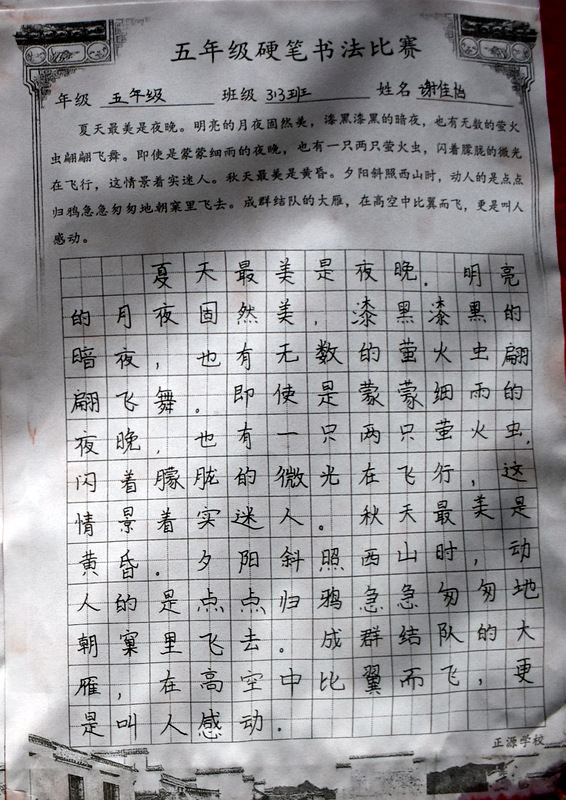 五年级硬笔书法比赛
年级 五年级 班级 313班 姓名 谢佳怡
夏天最美是夜晚。明亮的月夜固然美，漆黑漆黑的暗夜，也有无数的萤火
虫翩翩飞舞。即使是蒙蒙细雨的夜晚，也有一只两只萤火虫，闪着朦胧的微光
在飞行，这情景着实迷人。秋天最美是黄昏。夕阳斜照西山时，动人的是点点
归鸦急急匆匆地朝窠里飞去。成群结队的大雁，在高空中比翼而飞，更是叫人
感动。
夏天最美是夜晚。明亮
的月夜固然美，漆黑漆黑的
暗夜，也有无数的萤火虫翩
翩飞舞。即使是蒙蒙细雨的
夜晚，也有一只两只萤火虫，
闪着朦胧的微光在飞行，这
情景着实迷人。秋天最美是
黄昏。夕阳斜照西山时，动
人的是点点归鸦急急匆匆地
朝窠里飞去。成群结队的大
雁，在高空中比翼而飞，更
是叫人感动。
正源学校